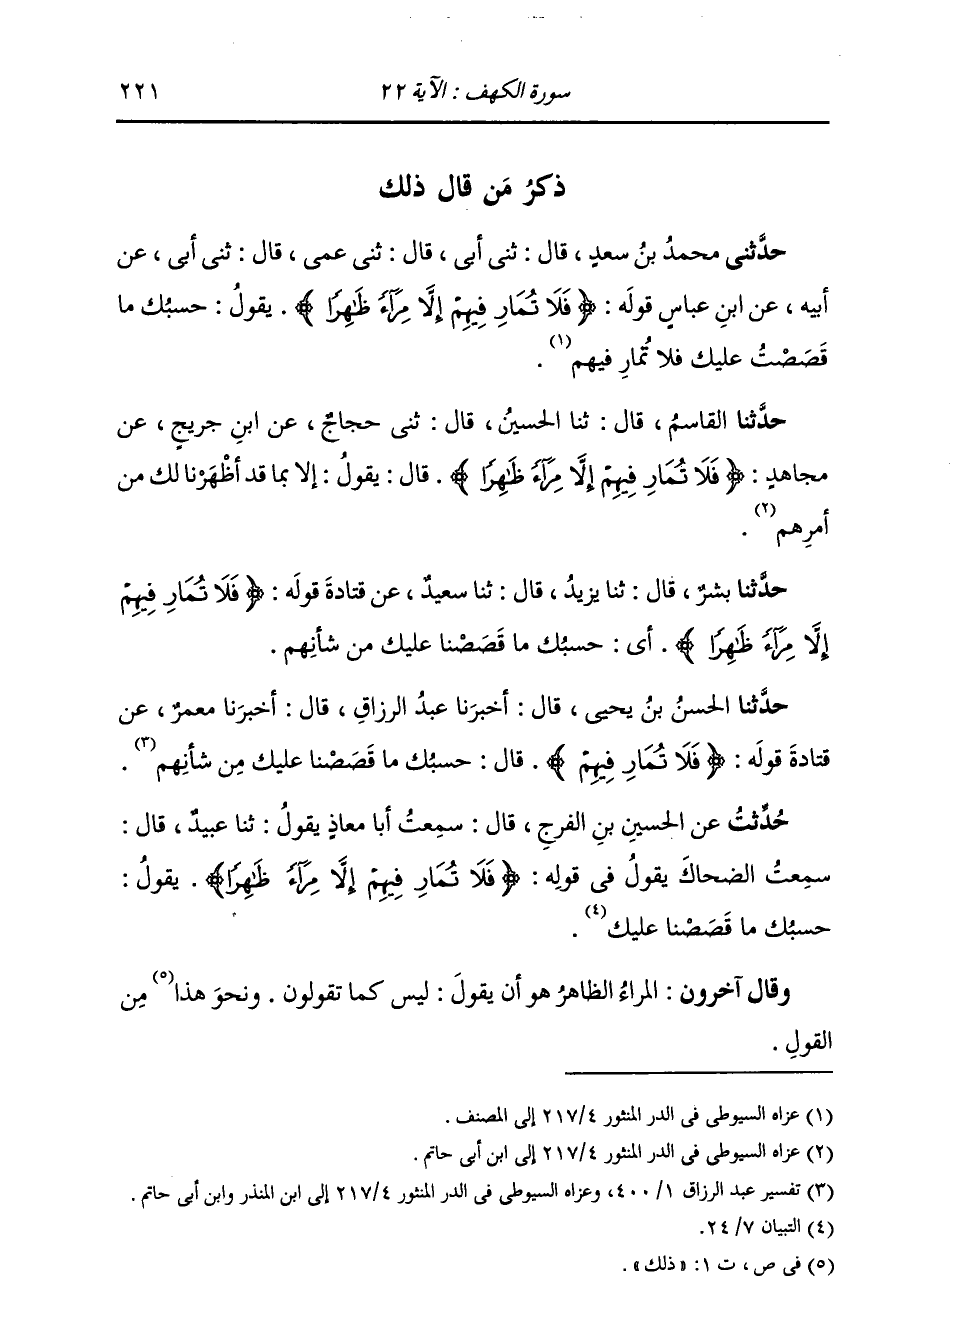 سورة الكهف : الآية ٢٢ ٢٢١
ذكرُ مَن قال ذلك
حدَّثنى محمدُ بنُ سعدٍ ، قال : ثنى أبى ، قال : ثنى عمى ، قال : ثنى أبى ، عن
أبيه ، عن ابنِ عباسٍ قولَه : ﴿ فَلَا تُمَارِ فِيهِمْ إِلَّا مِرَآءً ظَٰهِرًا ﴾ . يقولُ : حسبُك ما
قَصَصْتُ عليك فلا تُمارِ فيهم(١) .
حدَّثنا القاسمُ ، قال : ثنا الحسينُ ، قال : ثنى حجاجٌ ، عن ابنِ جريجٍ ، عن
مجاهدٍ : ﴿ فَلَا تُمَارِ فِيهِمْ إِلَّا مِرَآءً ظَٰهِرًا ﴾ . قال : يقولُ : إلا بما قد أظْهَرْنا لك من
أمرِهم(٢) .
حدَّثنا بشرٌ ، قال : ثنا يزيدُ ، قال : ثنا سعيدٌ ، عن قتادةَ قولَه : ﴿ فَلَا تُمَارِ فِيهِمْ
إِلَّا مِرَآءً ظَٰهِرًا ﴾ . أى : حسبُك ما قَصَصْنا عليك من شأنِهم .
حدَّثنا الحسنُ بنُ يحيى ، قال : أخبرَنا عبدُ الرزاقِ ، قال : أخبرَنا معمرٌ ، عن
قتادةَ قولَه : ﴿ فَلَا تُمَارِ فِيهِمْ ﴾ . قال : حسبُك ما قَصَصْنا عليك مِن شأنِهم(٣) .
حُدِّثتُ عن الحسينِ بنِ الفرجِ ، قال : سمِعتُ أبا معاذٍ يقولُ : ثنا عبيدٌ ، قال :
سمِعتُ الضحاكَ يقولُ فى قولِه : ﴿ فَلَا تُمَارِ فِيهِمْ إِلَّا مِرَآءً ظَٰهِرًا﴾ . يقولُ :
حسبُك ما قَصَصْنا عليك(٤) .
وقال آخرون : المراءُ الظاهرُ هو أن يقولَ : ليس كما تقولون . ونحوَ هذا(٥) مِن
القولِ .
(١) عزاه السيوطى فى الدر المنثور ٢١٧/٤ إلى المصنف .
(٢) عزاه السيوطى فى الدر المنثور ٢١٧/٤ إلى ابن أبى حاتم .
(٣) تفسير عبد الرزاق ١/ ٤٠٠، وعزاه السيوطى فى الدر المنثور ٢١٧/٤ إلى ابن المنذر وابن أبى حاتم .
(٤) التبيان ٧/ ٢٤.
(٥) فى ص ، ت ١: « ذلك » .